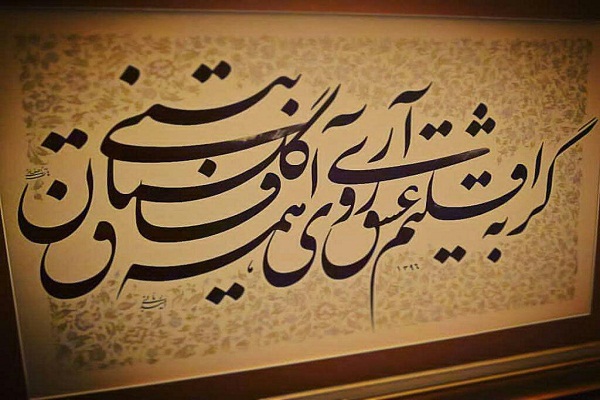 گر به اقلیم عشق روی آری
همه آفاق گلستان بینی
۱۳۹۶